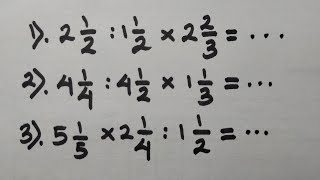 1). 2 1/2 : 1 1/2 × 2 2/3 = ...
2). 4 1/4 : 4 1/2 × 1 1/3 = ...
3). 5 1/5 × 2 1/4 : 1 1/2 = ...